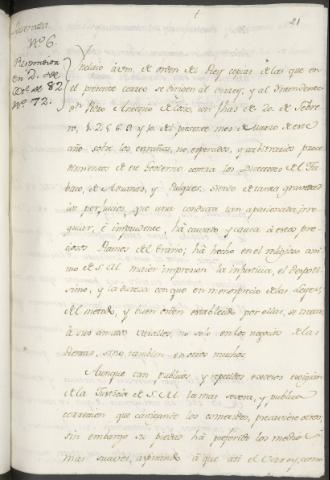 21
Reservada
N.º 6.
Respondida
en 2. de
de 82
N.º 72.
Incluio à vm. de orden del Rey copias de las que en
el presente correo se dirigen al Virrey, y al Intendente
Dn Pedro Antonio de con fhas de 20. de Febre-
ro, 1. 2. 5. 6. 8. y 10. del presente mes de Marzo de este
año, sobre los extraños, no esperados, y arbitrarios proce-
dimientos de su Govierno contra los Directores del Ta-
baco, de y Pulques. Siendo de tanta gravedad
los perjuicios, que una conducta tan apasionada, irre-
gular, è imprudente, hà causado, y causa à estos pre-
ciosos Ramos del Erario; hà hecho en el religioso ani-
mo de S. M. maior impresion la injusticia, el despotis-
mo, y la dureza con que en menosprecio de las Leyes,
del metodo, y buen orden establecido por ellas, se trata
à sus amados vasallos, no solo en los negocios de las
Rentas, sino tambien en otros muchos.
Aunque tan publicos, y repetidos excesos exigian
de la Justicia de S. M. la mas severa, y publica
correccion que castigando los cometidos, precaviese otros;
sin embargo su piedad hà preferido los medios
mas suaves, aspirando à que asi el Virrey, como